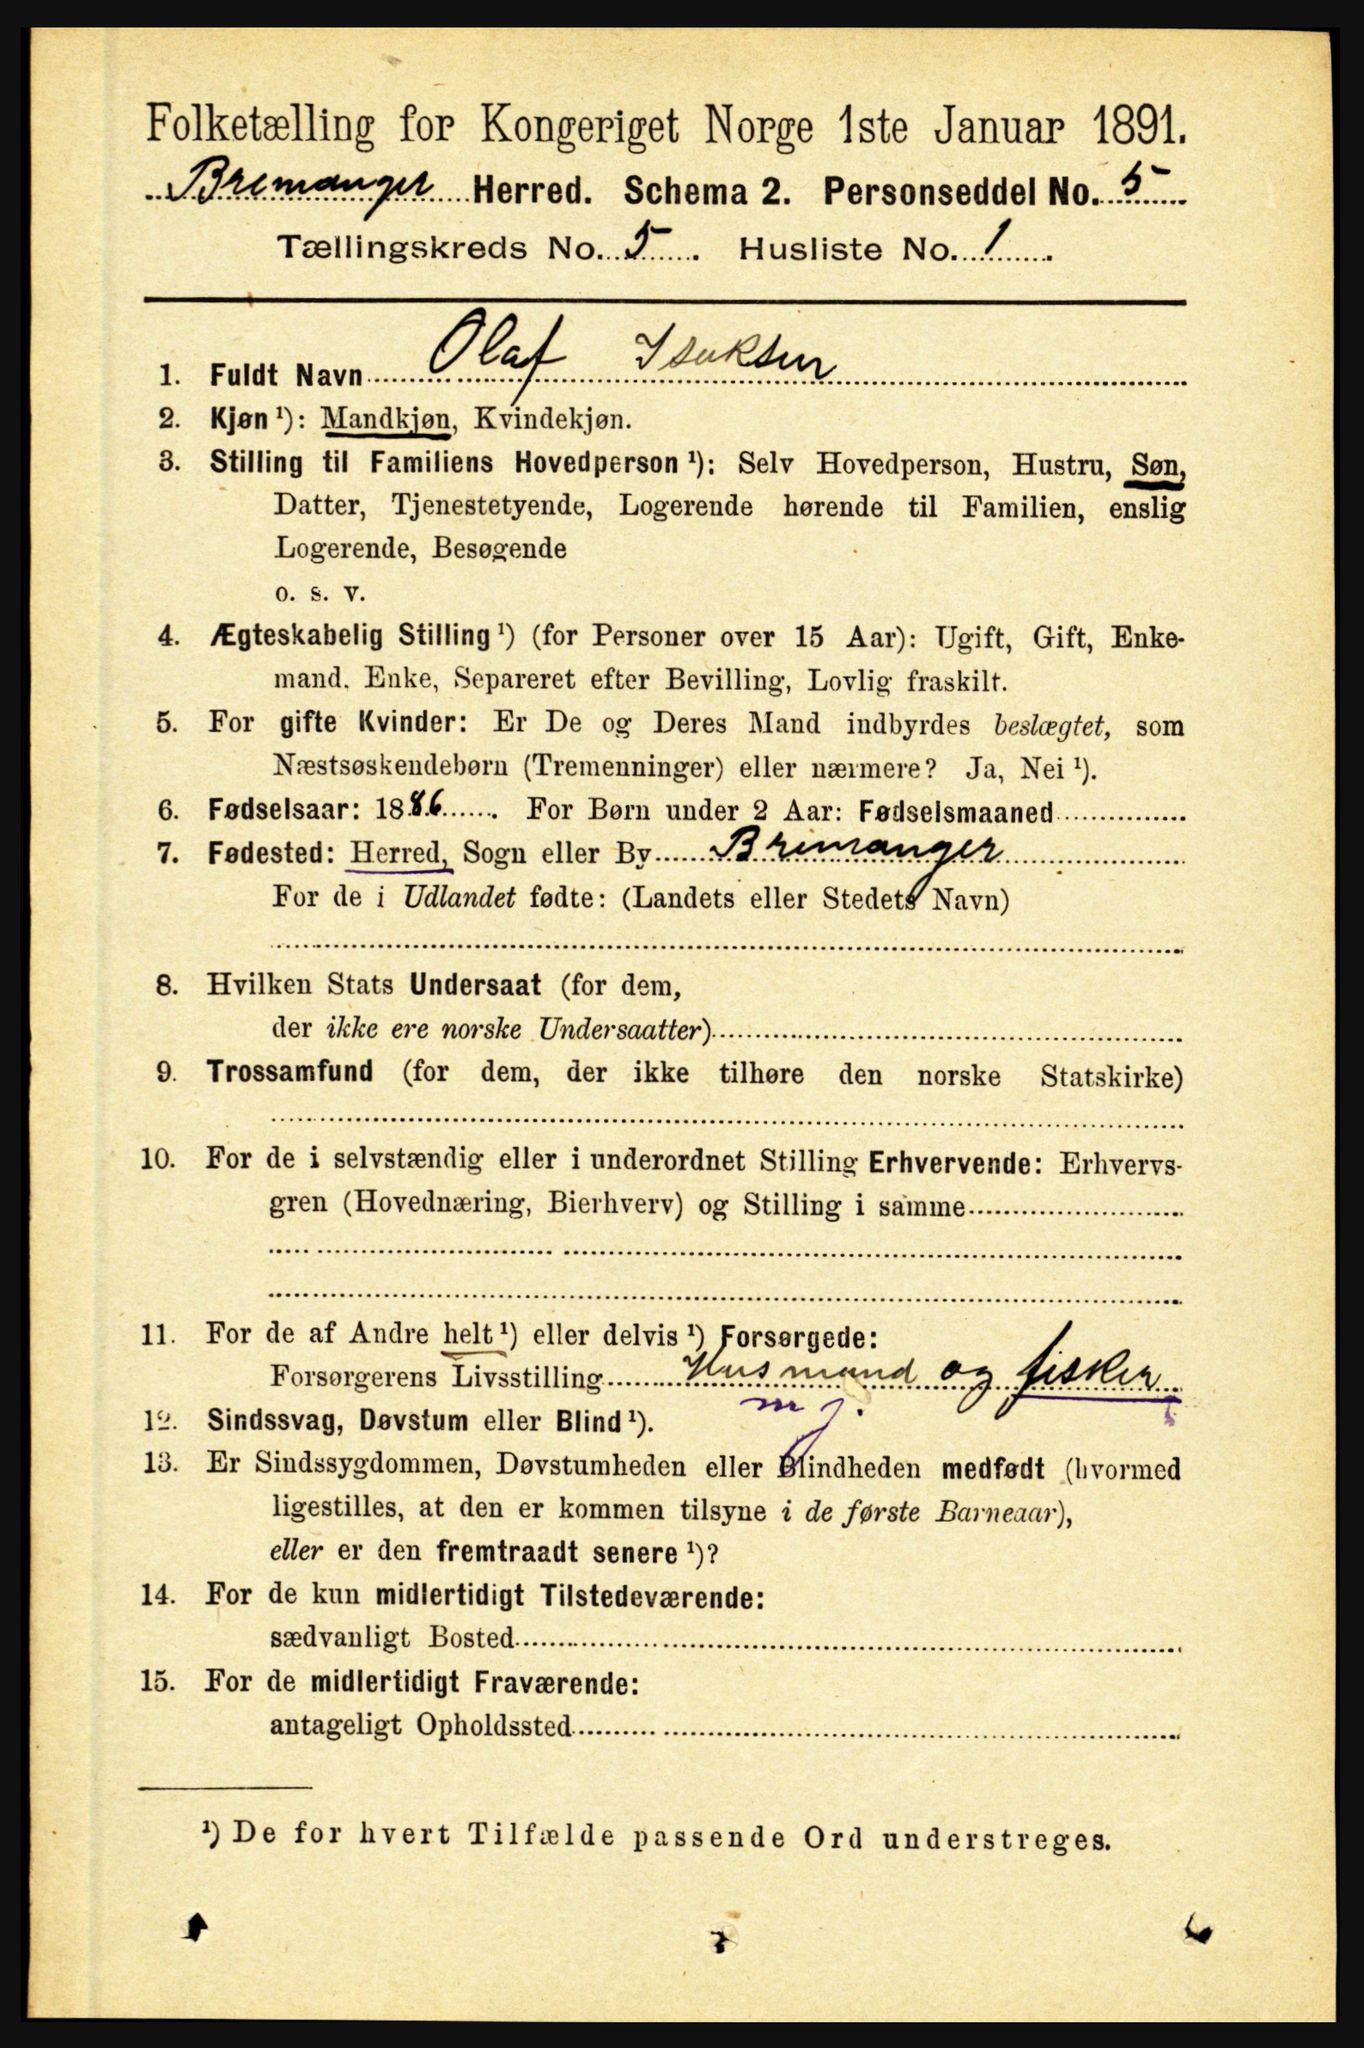 Folketælling for Kongeriget Norge 1ste Januar 1891.
Bremanger Herred. Schema 2. Personseddel No. 5
Tællingskreds No. 5. Husliste No. 1.
1. Fuldt Navn Olaf Isaksen
2. Kjøn ¹): Mandkjøn, Kvindekjøn.
3. Stilling til Familiens Hovedperson ¹): Selv Hovedperson, Hustru, Søn,
Datter, Tjenestetyende, Logerende hørende til Familien, enslig
Logerende, Besøgende
o. s. v.
4. Ægteskabelig Stilling ¹) (for Personer over 15 Aar): Ugift, Gift, Enke-
mand. Enke, Separeret efter Bevilling, Lovlig fraskilt.
5. For gifte Kvinder: Er De og Deres Mand indbyrdes beslægtet, som
Næstsøskendebørn (Tremenninger) eller nærmere? Ja, Nei ¹).
6. Fødselsaar: 1886. For Børn under 2 Aar: Fødselsmaaned
7. Fødested: Herred, Sogn eller By Bremanger
For de i Udlandet fødte: (Landets eller Stedets Navn)
8. Hvilken Stats Undersaat (for dem,
der ikke ere norske Undersaatter)
9. Trossamfund (for dem, der ikke tilhøre den norske Statskirke)
10. For de i selvstændig eller i underordnet Stilling Erhvervende: Erhvervs-
gren (Hovednæring, Bierhverv) og Stilling i samme
11. For de af Andre helt ¹) eller delvis ¹) Forsørgede:
Forsørgerens Livsstilling Husmand og fisker
m j.
12. Sindssvag, Døvstum eller Blind ¹).
13. Er Sindssygdommen, Døvstumheden eller Blindheden medfødt (hvormed
ligestilles, at den er kommen tilsyne i de første Barneaar),
eller er den fremtraadt senere ¹)?
14. For de kun midlertidigt Tilstedeværende:
sædvanligt Bosted
15. For de midlertidigt Fraværende:
antageligt Opholdssted
¹) De for hvert Tilfælde passende Ord understreges.